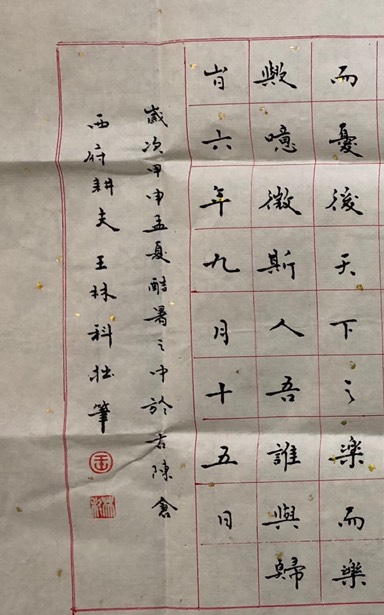 而憂後天下之樂而樂
歟噫微斯人吾誰與歸
旹六年九月十五日
歲次甲申孟夏酷暑之中於古陳倉
西府耕夫王林科拙筆
王